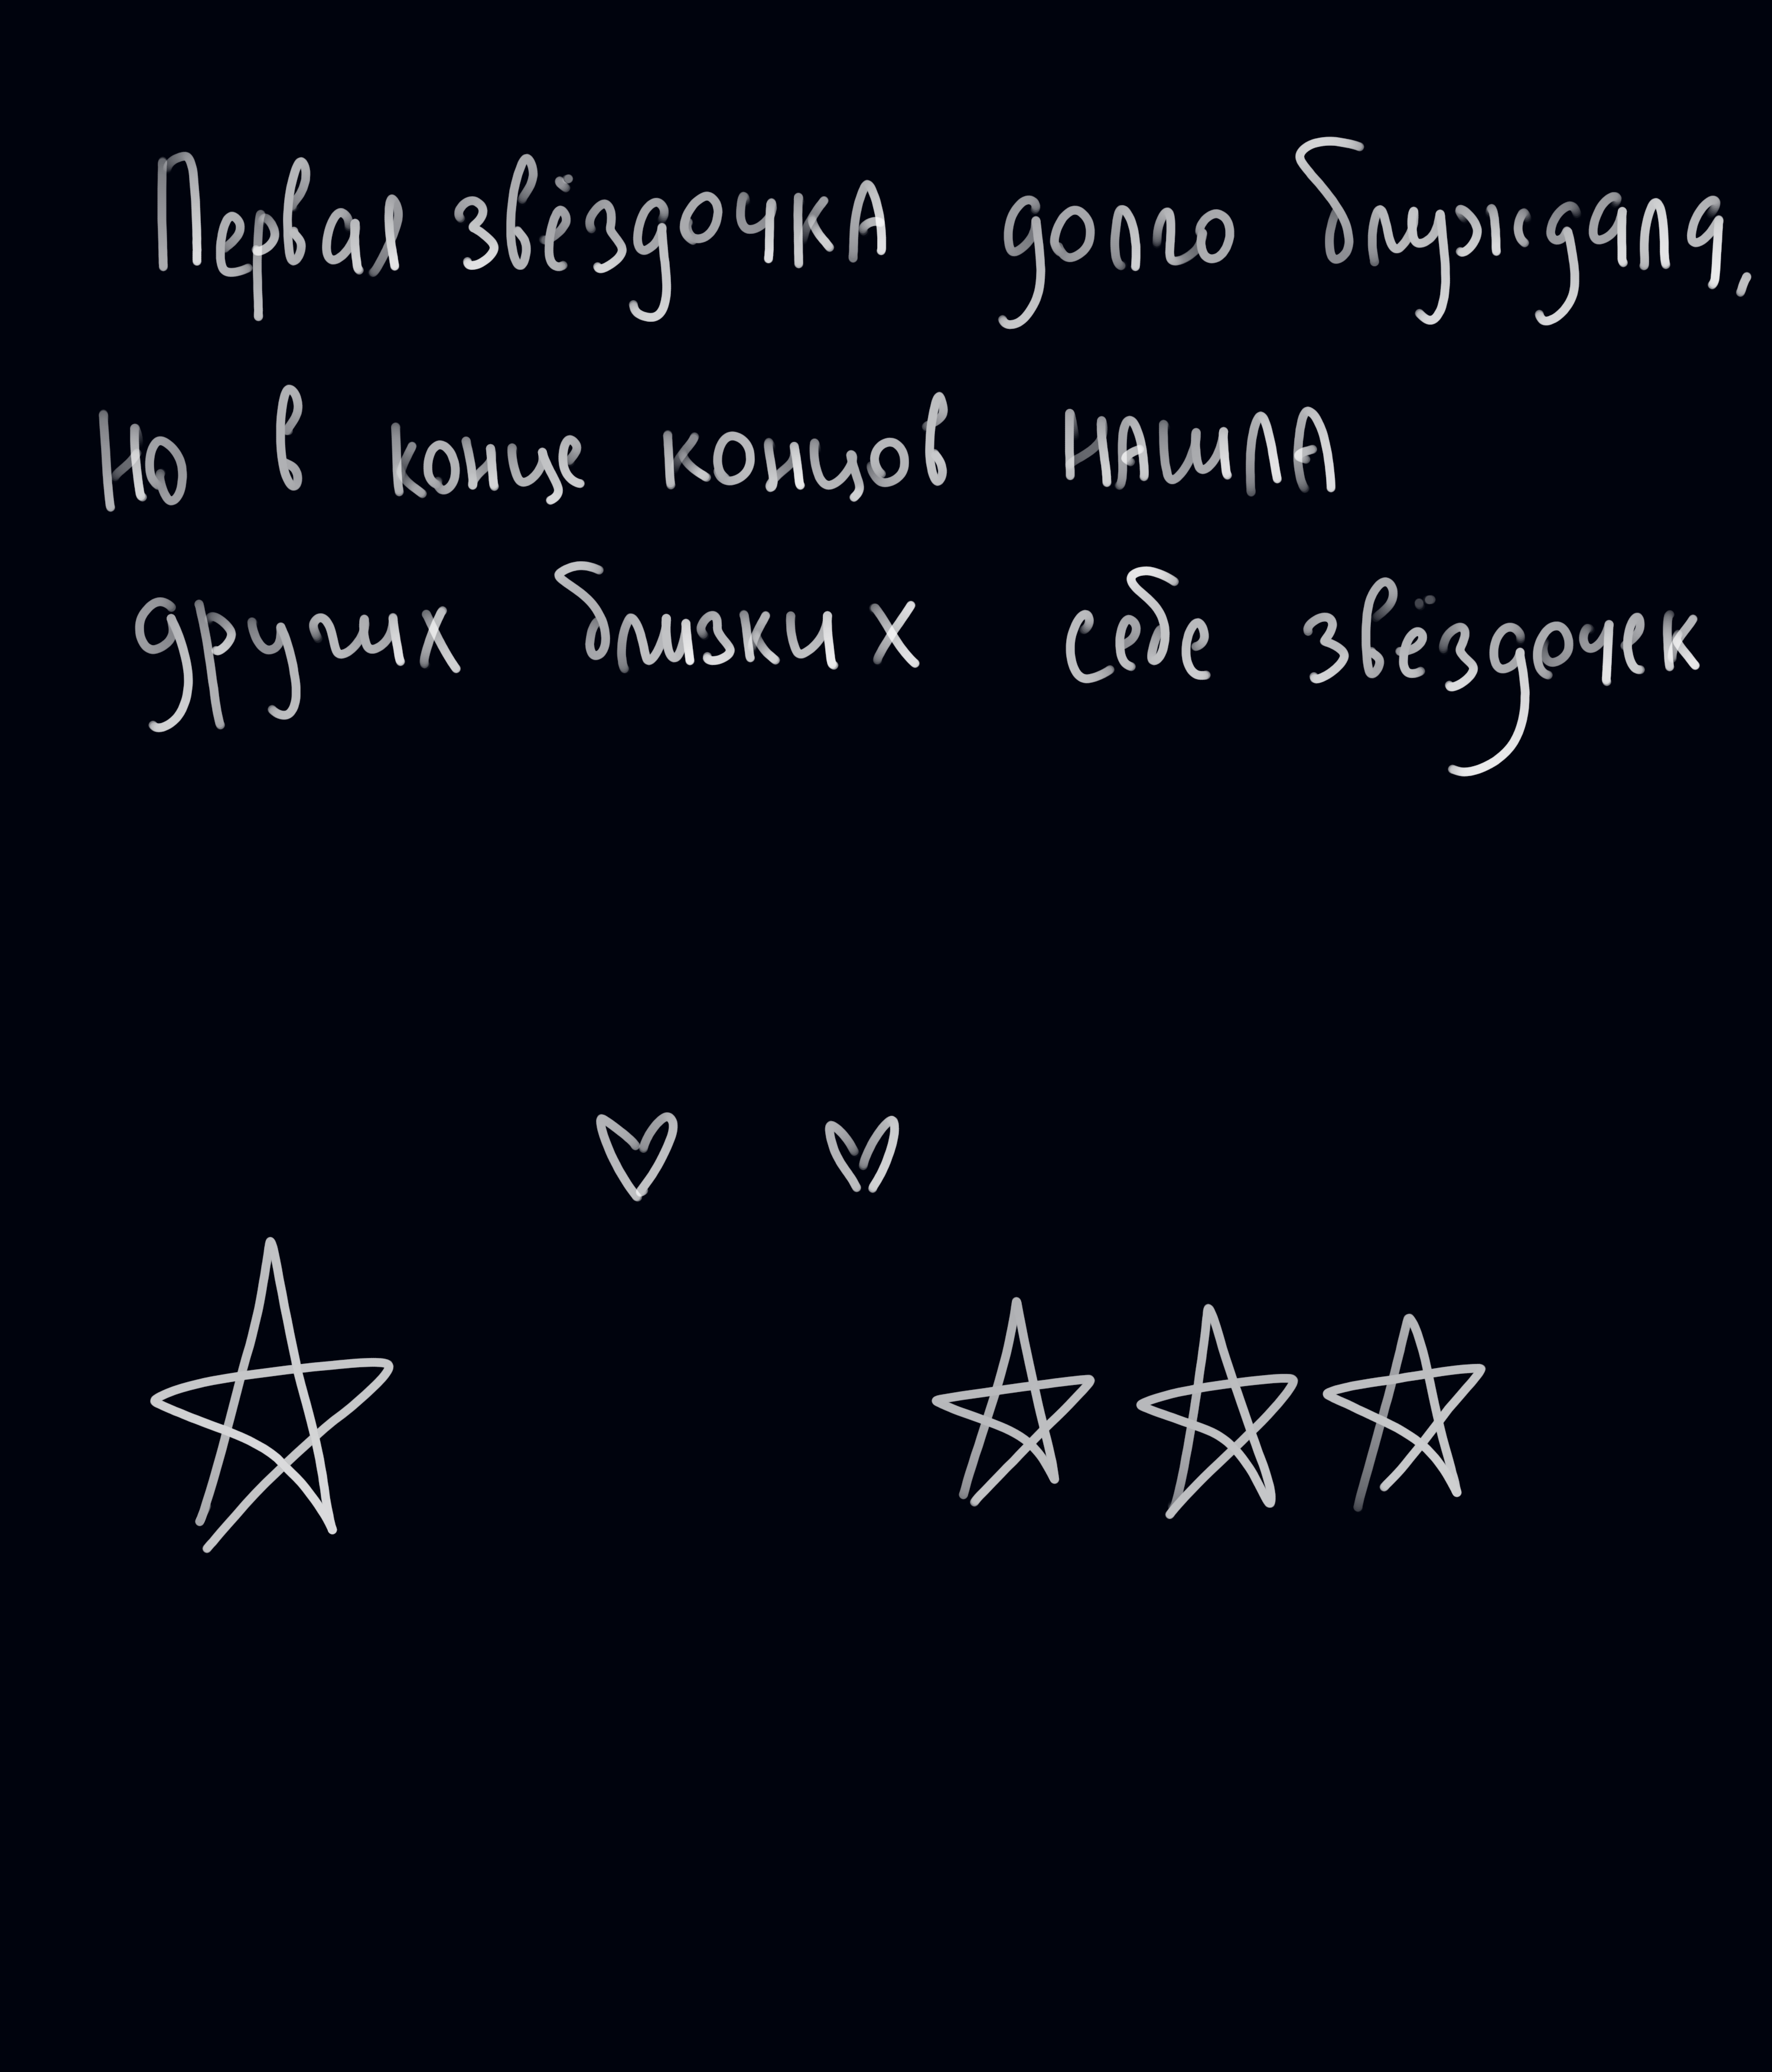 Первая звёздочка долго блуждала,
но в конце концов нашла
других близких себе звёздочек